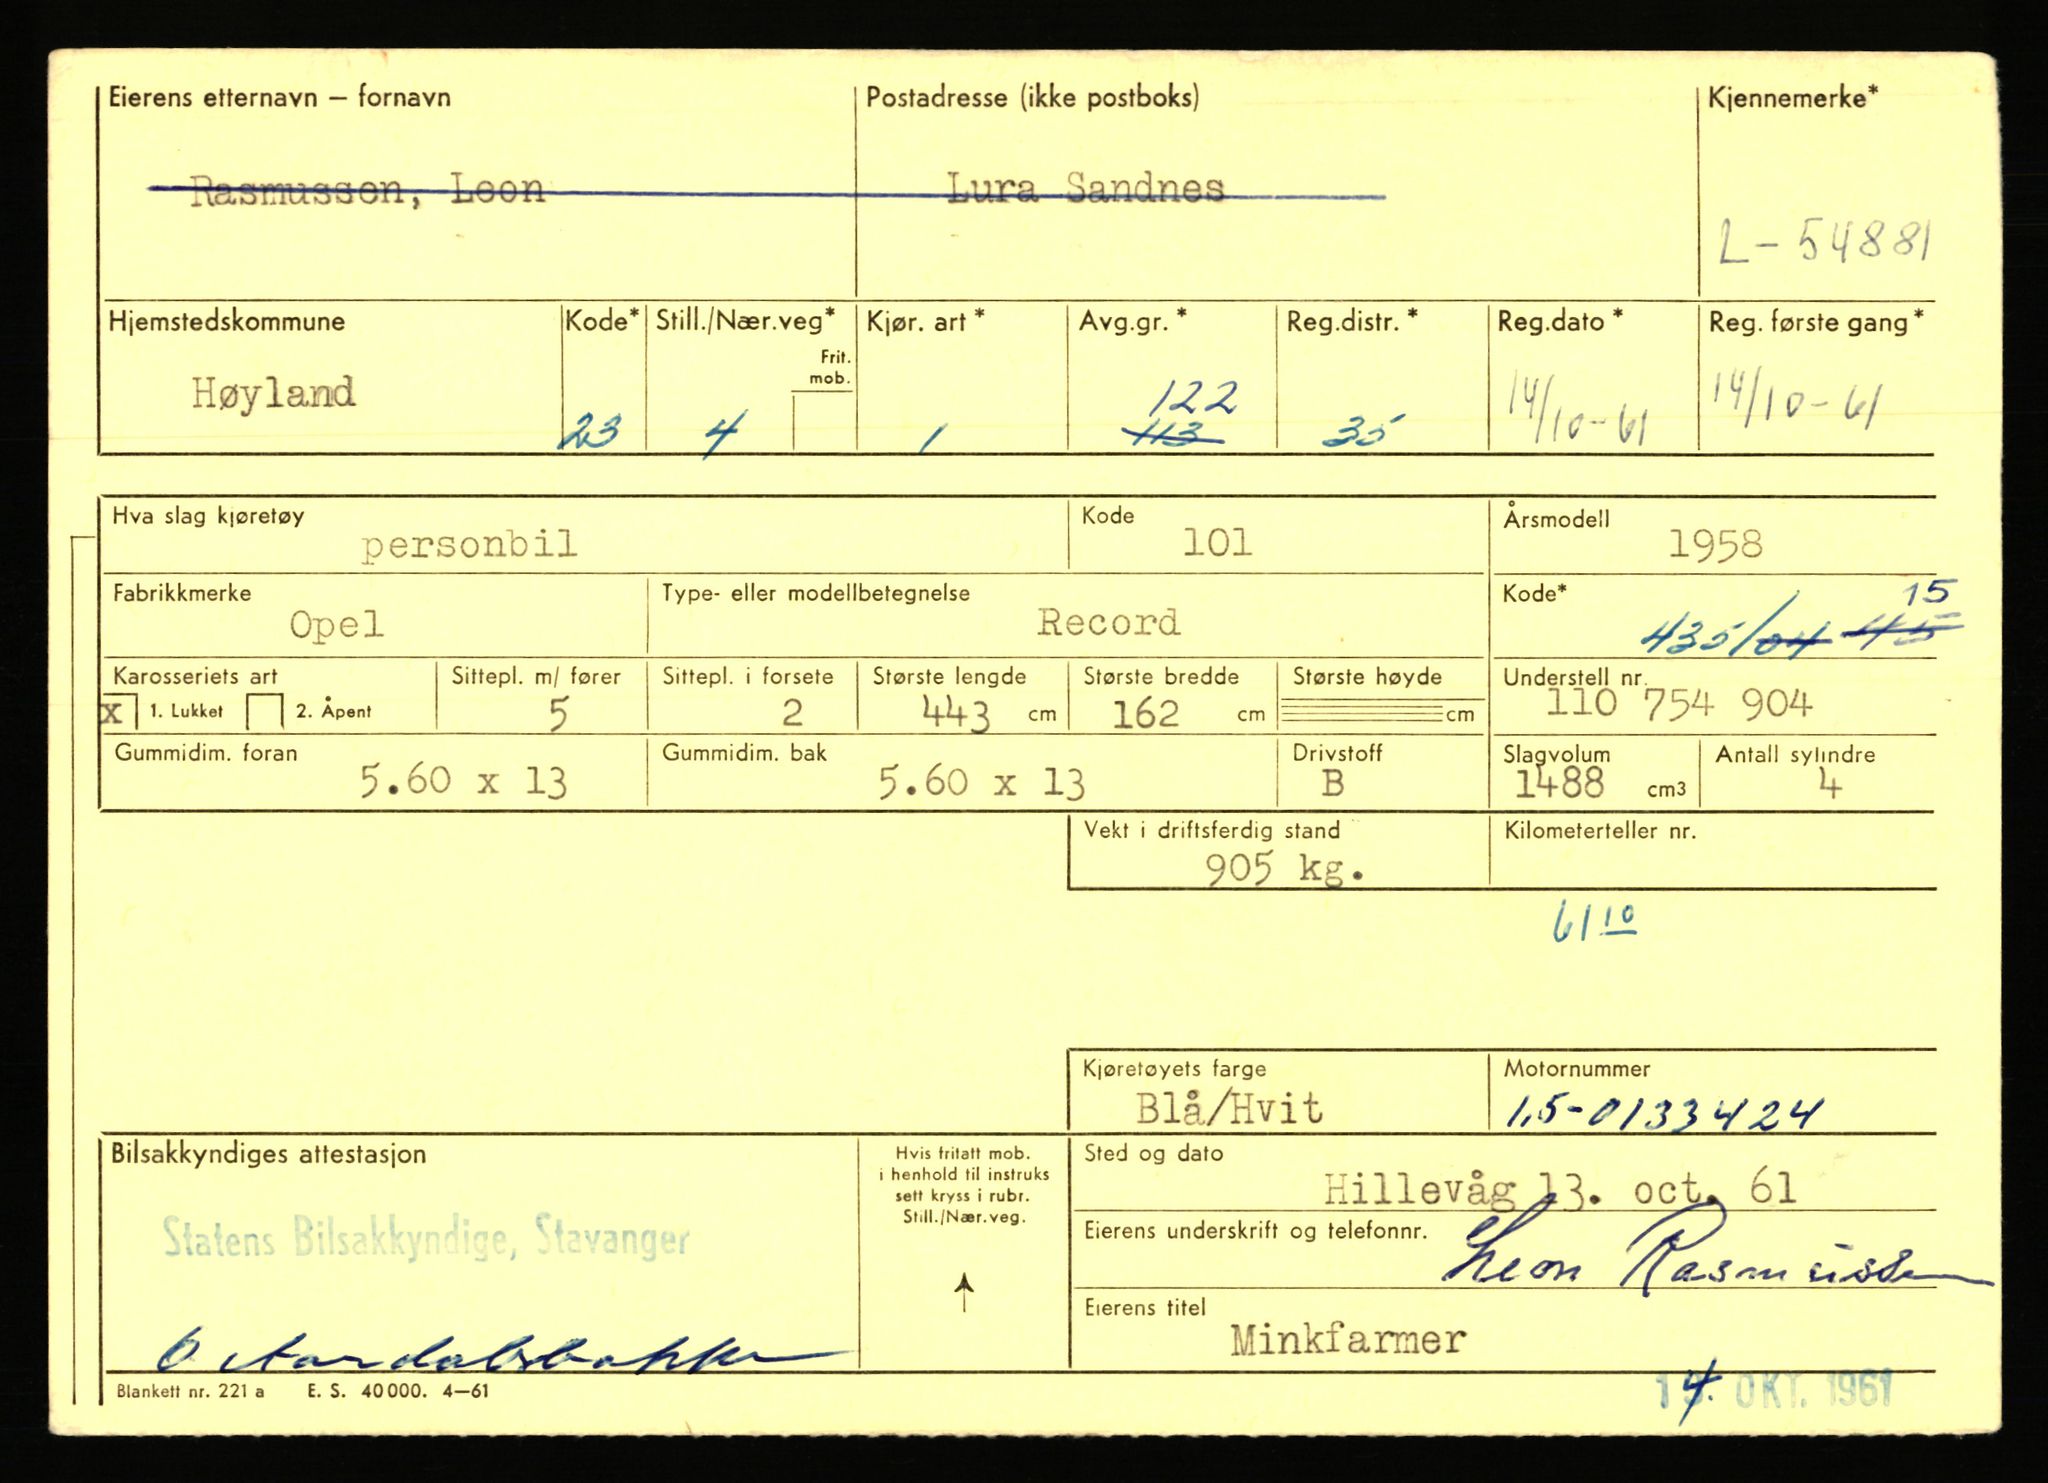 Eierens etternavn – fornavn Postadresse (ikke postboks) Kjennemerke*
Rasmussen, Leon Lura Sandnes
L-54881
Hjemstedskommune Kode* Still./Nær.veg* Kjør. art* Avg.gr.* Reg.distr.* Reg.dato* Reg. første gang*
Frit.
mob.
Høyland 23 4 1 122 35 14/10-61 14/10-61
113
Hva slag kjøretøy Kode Årsmodell
personbil 101 1958
Fabrikkmerke Type- eller modellbetegnelse Kode* 15
Opel Record 435/04 45
Karosseriets art Sittepl. m/ fører Sittepl. i forsete Største lengde Største bredde Største høyde Understell nr.
X 1. Lukket 2. Åpent 5 2 443 cm 162 cm cm 110 754 904
Gummidim. foran Gummidim. bak Drivstoff Slagvolum Antall sylindre
5.60 x 13 5.60 x 13 B 1488 cm3 4
Vekt i driftsferdig stand Kilometerteller nr.
905 kg.
61 10
Kjøretøyets farge Motornummer
Blå/Hvit 1,5-0133424
Bilsakkyndiges attestasjon Hvis fritatt mob. Sted og dato
i henhold til instruks
sett kryss i rubr.
Still./Nær.veg.
Hillevåg 13. oct. 61
Statens Bilsakkyndige, Stavanger
Eierens underskrift og telefonnr.
Leon Rasmussen
Eierens titel
Minkfarmer
Blankett nr. 221 a E. S. 40 000. 4–61
14. OKT. 1961